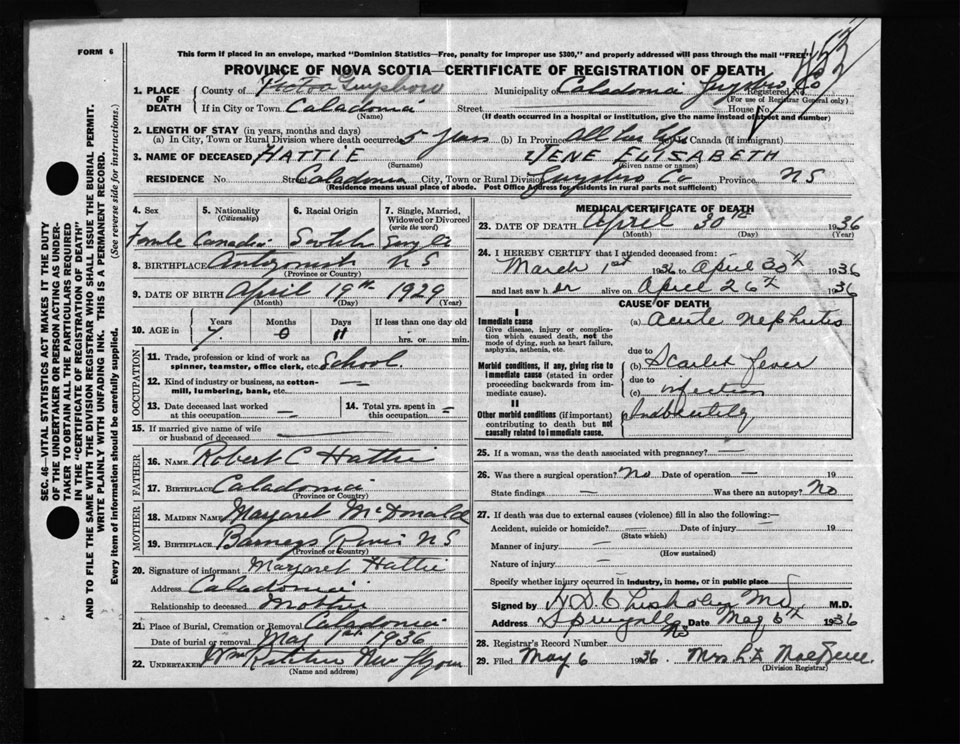 FORM 6
This form if placed in an envelope, marked "Dominion Statistics—Free, penalty for improper use $300," and properly addressed will pass through the mail "FREE"
PROVINCE OF NOVA SCOTIA—CERTIFICATE OF REGISTRATION OF DEATH
1. PLACE OF DEATH
County of Guysboro Municipality of Caladonia Guysboro Co Registered No.
(For use of Registrar General only)
If in City or Town Caladonia Street House No.
(Name) (If death occurred in a hospital or institution, give the name instead of street and number)
2. LENGTH OF STAY (in years, months and days)
(a) In City, Town or Rural Division where death occurred 5 years (b) In Province All her life Canada (if immigrant)
3. NAME OF DECEASED HATTIE ELISABETH
(Surname) (Given name or names)
RESIDENCE No. Street Caladonia City, Town or Rural Division Guysboro Co Province NS
(Residence means usual place of abode. Post Office Address for residents in rural parts not sufficient)
4. Sex
5. Nationality (Citizenship)
6. Racial Origin
7. Single, Married, Widowed or Divorced (write the word)
Female Canadian Scotch Single
8. BIRTHPLACE Antigonish NS
(Province or Country)
9. DATE OF BIRTH April 19th 1929
(Month) (Day) (Year)
10. AGE in Years Months Days If less than one day old
7 0 11 hrs. or min.
OCCUPATION
11. Trade, profession or kind of work as spinner, teamster, office clerk, etc. School.
12. Kind of industry or business, as cotton-mill, lumbering, bank, etc. —
13. Date deceased last worked at this occupation —
14. Total yrs. spent in this occupation
15. If married give name of wife or husband of deceased —
FATHER
16. NAME Robert C Hattie
17. BIRTHPLACE Caladonia
(Province or Country)
MOTHER
18. MAIDEN NAME Margaret McDonald
19. BIRTHPLACE Barneys River NS
(Province or Country)
20. Signature of informant Margaret Hattie
Address Caladonia
Relationship to deceased Mother
21. Place of Burial, Cremation or Removal Caladonia
Date of burial or removal May 1st 1936
22. UNDERTAKER
(Name and address)
MEDICAL CERTIFICATE OF DEATH
23. DATE OF DEATH April 30th 1936
(Month) (Day) (Year)
24. I HEREBY CERTIFY that I attended deceased from:
March 1st 1936 to April 30th 1936
and last saw her alive on April 26th 1936
CAUSE OF DEATH
I
Immediate cause
Give disease, injury or complication which caused death, not the mode of dying, such as heart failure, asphyxia, asthenia, etc.
(a) Acute Nephritis
due to
Morbid conditions, if any, giving rise to immediate cause (stated in order proceeding backwards from immediate cause).
(b) Scarlet Fever
due to
(c)
II
Other morbid conditions (if important) contributing to death but not causally related to immediate cause.
25. If a woman, was the death associated with pregnancy? —
26. Was there a surgical operation? No Date of operation — 19
State findings — Was there an autopsy? No
27. If death was due to external causes (violence) fill in also the following:—
Accident, suicide or homicide? — Date of injury — 19
(State which)
Manner of injury —
(How sustained)
Nature of injury —
Specify whether injury occurred in industry, in home, or in public place
Signed by Chisholm Md M.D.
Address NS Date May 6th 1936
28. Registrar's Record Number
29. Filed May 6 1936.
(Division Registrar)
SEC. 46—VITAL STATISTICS ACT MAKES IT THE DUTY
OF THE UNDERTAKER OR PERSON ACTING AS UNDER-
TAKER TO OBTAIN ALL THE PARTICULARS REQUIRED
IN THE "CERTIFICATE OF REGISTRATION OF DEATH"
AND TO FILE THE SAME WITH THE DIVISION REGISTRAR WHO SHALL ISSUE THE BURIAL PERMIT.
WRITE PLAINLY WITH UNFADING INK. THIS IS A PERMANENT RECORD.
Every item of information should be carefully supplied. (See reverse side for instructions.)